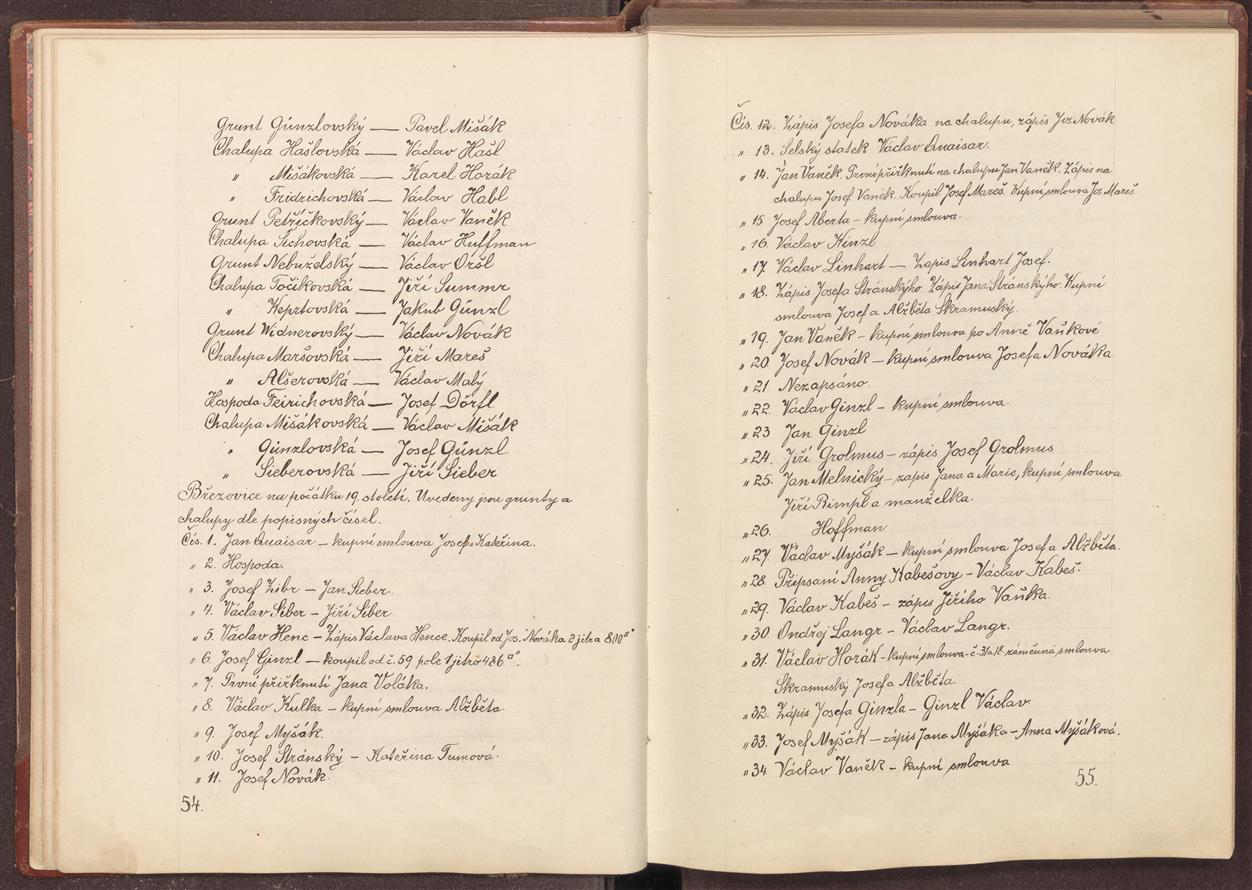 Grunt Günzlovský — Pavel Mišák
Chalupa Hašlovská — Václav Hašl
„ Mišákovská — Karel Horák
„ Fridrichovská — Václav Habl
Grunt Petříčkovský — Václav Vaněk
Chalupa Tichovská — Václav Huffman
Grunt Nebuželský — Václav Oršl
Chalupa Točíkovská — Jiří Summr
„ Keprtovská — Jakub Günzl
Grunt Widnerovský — Václav Novák
Chalupa Maršovská — Jiří Mareš
„ Alšerovská — Václav Malý
Hospoda Feirichovská — Josef Dörfl
Chalupa Mišákovská — Václav Mišák
„ Günzlovská — Josef Günzl
„ Sieberovská — Jiří Sieber
Březovice na počátku 19. století. Uvedeny jsou grunty a
chalupy dle popisných čísel.
Čís. 1. Jan Quaisar – kupní smlouva Josef a Kateřina.
„ 2. Hospoda.
„ 3. Josef Zibr – Jan Sieber.
„ 4. Václav Siber – Jiří Siber
„ 5. Václav Henc – Zápis Václava Hence. Koupil od Jos. Nováka 2 jitra 800□°
„ 6. Josef Ginzl – koupil od č. 59 pole 1 jitro 486□°.
„ 7. První přiřknutí Jana Voláka.
„ 8. Václav Kulka – kupní smlouva Alžběta.
„ 9. Josef Myšák.
„ 10. Josef Stránský – Kateřina Tumová.
„ 11. Josef Novák.
54.
Čís. 12. Zápis Josefa Nováka na chalupu, zápis Jos Novák
„ 13. Selský statek Václav Quaisar.
„ 14. Jan Vaněk. První přiřknutí na chalupu Jan Vaněk. Zápis na
chalupu Josef Vaněk. Koupil Josef Mareš. Kupní smlouva Jos Mareš
„ 15 Josef Aberta – kupní smlouva.
„ 16. Václav Kinzl
„ 17. Václav Linhart — Zápis Linhart Josef.
„ 18. Zápis Josefa Stránskýho. Zápis Jana Stránskýho. Kupní
smlouva Josef a Alžběta Skramuský.
„ 19. Jan Vaněk – kupní smlouva po Anně Vaňkové
„ 20 Josef Novák – kupní smlouva Josefa Nováka
„ 21 Nezapsáno.
„ 22. Vaclav Ginzl – kupní smlouva.
„ 23 Jan Ginzl
„ 24. Jiří Grolmus – zápis Josef Grolmus
„ 25. Jan Melnický – zápis Jana a Marie, kupní smlouva
Jiří Rimpl a manželka.
„ 26. Hoffman
„ 27 Václav Myšák – kupní smlouva Josef a Alžběta.
„ 28 Připsaní Anny Kabešovy – Václav Kabeš.
„ 29. Václav Kabeš – zápis Jiřího Vaňka
„ 30. Ondřej Langr – Václav Langr.
„ 31. Václav Horák – kupní smlouva – č. 31 a 18 záměnná smlouva
Skramuský Josef a Alžběta.
„ 32. Zápis Josefa Ginzla – Ginzl Václav
„ 33. Josef Myšák – zápis Jana Myšáka – Anna Myšáková.
„ 34 Václav Vaněk – kupní smlouva
55.